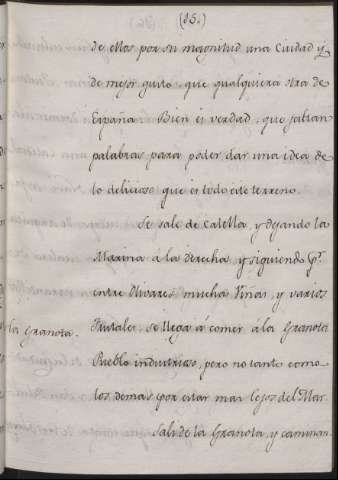 (85.)
de ellos por su magnitud una Ciudad y
de mejor gusto, que qualquiera otra de
España. Bien es verdad, que faltan
palabras para poder dar una idea de
lo delicioso que es todo este terreno.
Se sale de Calella, y dejando la
Marina á la derecha, y siguiendo pr.
entre Olivares mucha Viñas, y varios
la Granota.
Frutales, se llega á comer á la Granota
Pueblo industrioso, pero no tanto como
los demas por estar mas lejos del Mar.
Salí de la Granota, y caminan-